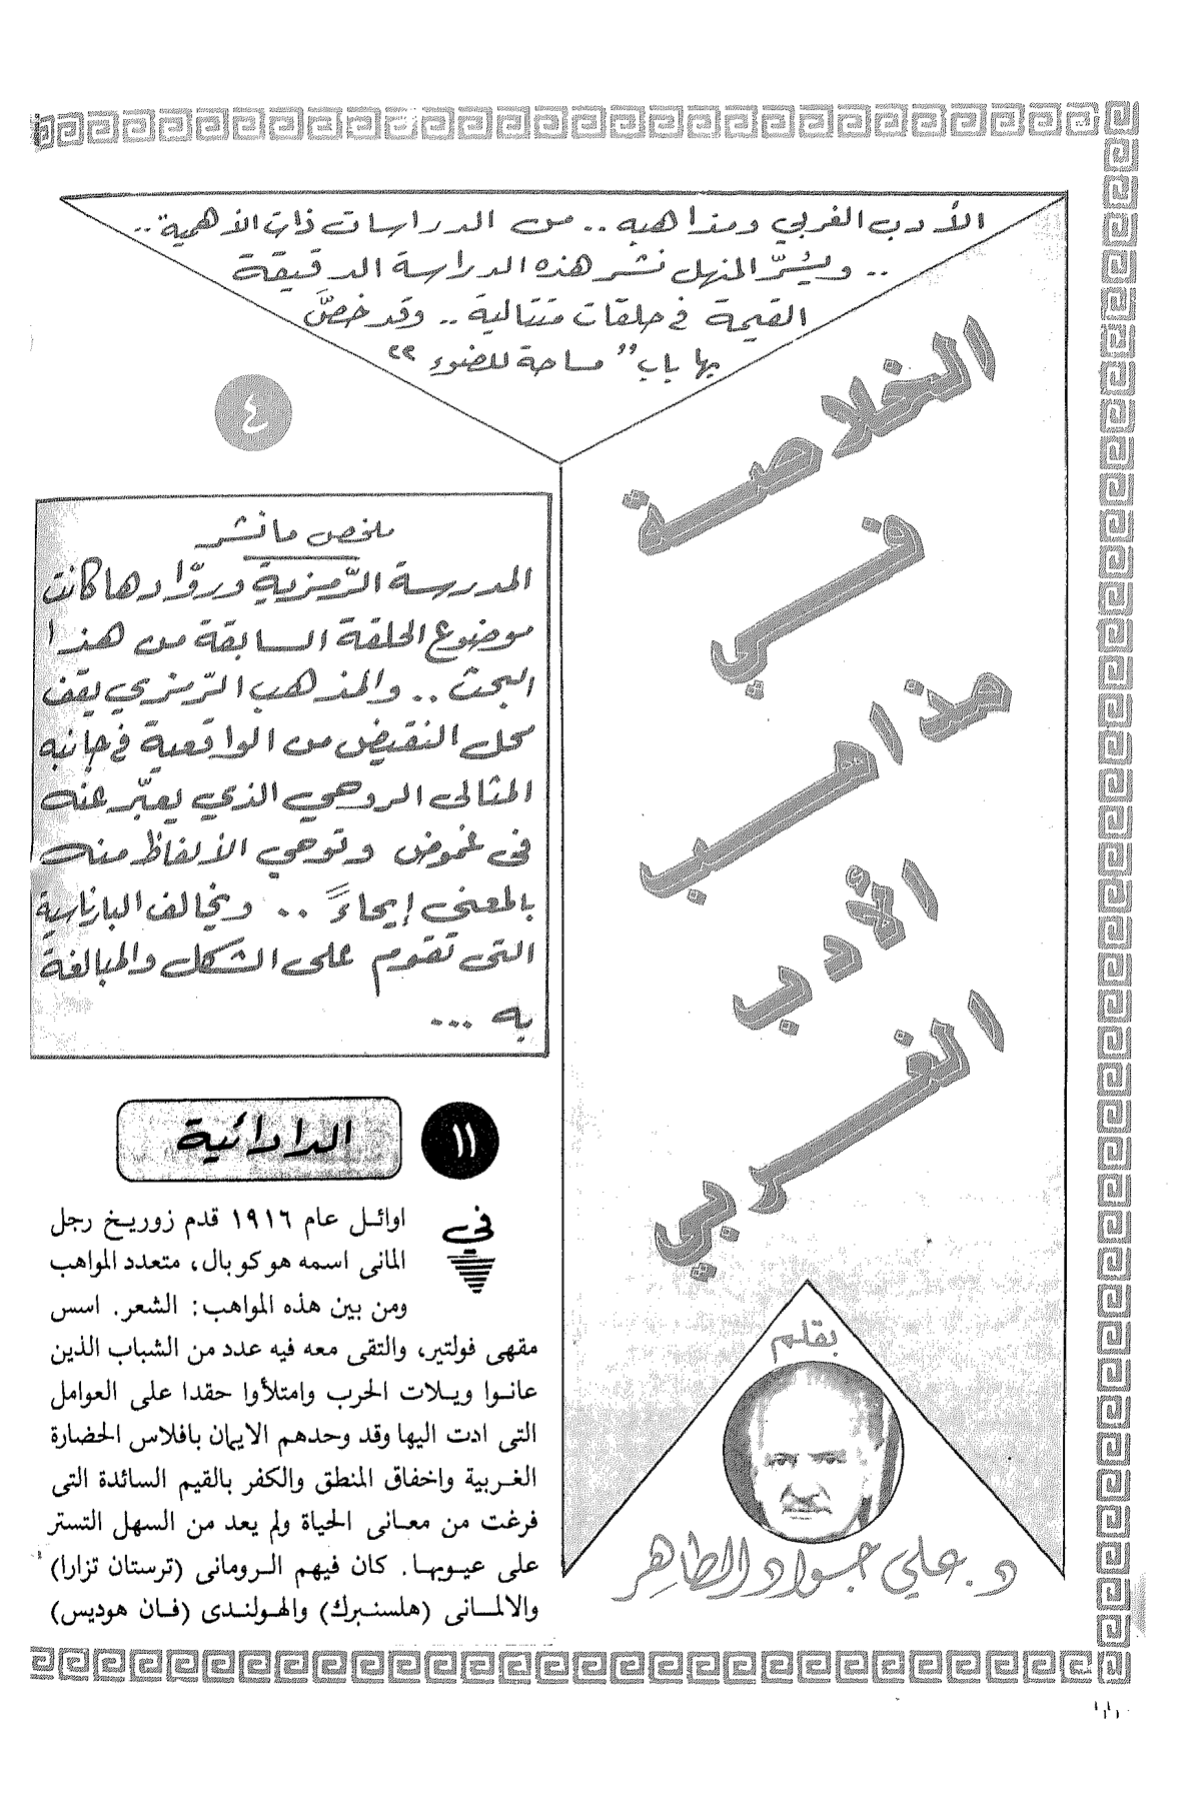 الأدب الغربي ومذاهبه .. من الدراسات ذات الأهمية ..
.. ويسُرّ المنهل نشر هذه الدراسة الدقيقة
القيمة في حلقات متتالية .. وقد خصَّ
بها باب " مساحة للضوء "
الخلاصة
في
مذاهب
الأدب
الغربي
بقلم
د. علي جواد الطاهر
٤
ملخص ما نشر
المدرسة الرّمزية وروّادها كانت
موضوع الحلقة السابقة من هذا
البحث .. والمذهب الرّمزي يقف
محل النقيض من الواقعية في جانبه
المثالى الروحي الذي يعبّر عنه
فى غموض وتوحي الألفاظ منه
بالمعنى إيحاءً .. ويخالف البارناسية
التى تقوم على الشكل والمبالغة
به ...
١١
الدادائية
فى اوائل عام ١٩١٦ قدم زوريخ رجل
المانى اسمه هوكو بال، متعدد المواهب
ومن بين هذه المواهب: الشعر. اسس
مقهى فولتير، والتقى معه فيه عدد من الشباب الذين
عانوا ويلات الحرب وامتلأوا حقدا على العوامل
التى ادت اليها وقد وحدهم الايمان بافلاس الحضارة
الغربية واخفاق المنطق والكفر بالقيم السائدة التى
فرغت من معانى الحياة ولم يعد من السهل التستر
على عيوبها. كان فيهم الرومانى (ترستان تزارا)
والالمانى (هلسنبرك) والهولندى (فان هوديس)